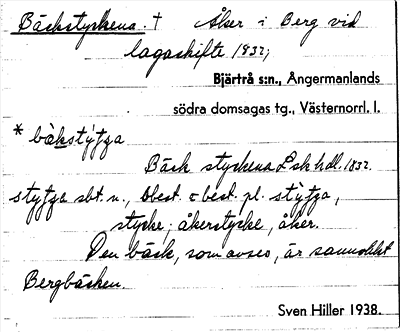 Bäckstyckena. † Åker i Berg vid
lagaskifte 1832;
Bjärtrå s:n., Ångermanlands
södra domsagas tg., Västernorrl. l.
* bäkstýʃʃa
Bäck styckena Lsk hdl. 1832.
styʃʃa sbt. n., obest. o best. pl. stýʃʃa,
stycke; åkerstycke, åker.
Den bäck, som avses, är sannolikt
Bergbäcken.
Sven Hiller 1938.